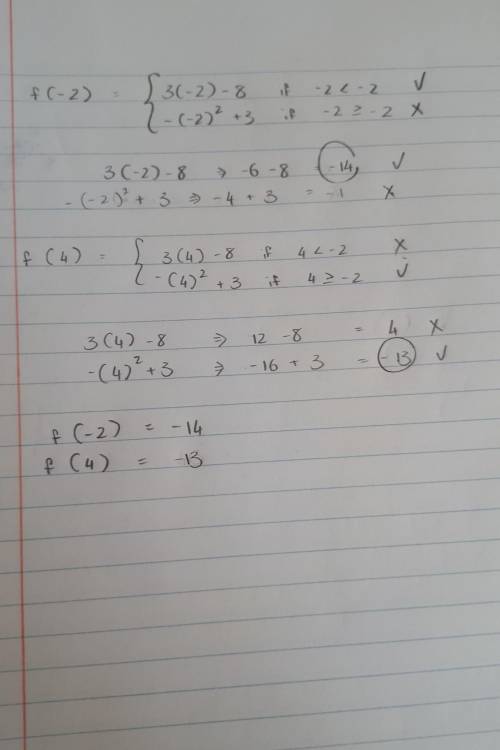 f(-2) = { 3(-2) - 8 if -2 < -2 ✓
-(-2)² + 3 if -2 ≥ -2 ✗
3(-2) - 8 ⇒ -6 - 8 = -14, ✓
-(-2)² + 3 ⇒ -4 + 3 = -1 ✗
f(4) = { 3(4) - 8 if 4 < -2 ✗
-(4)² + 3 if 4 ≥ -2 ✓
3(4) - 8 ⇒ 12 - 8 = 4 ✗
-(4)² + 3 ⇒ -16 + 3 = -13 ✓
f(-2) = -14
f(4) = -13